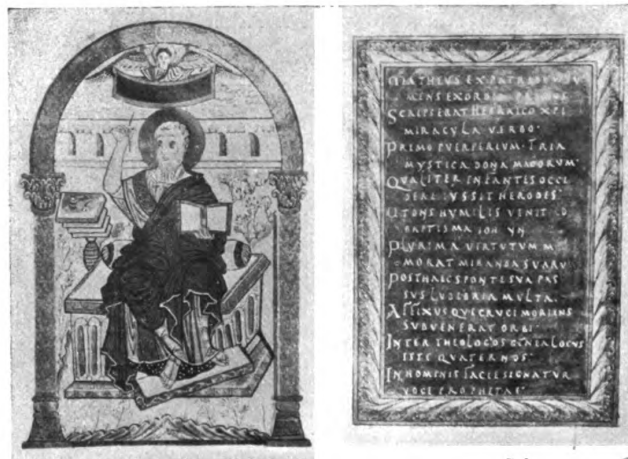 MATHEUS EX PATRE
MENS EXORDIA
SCRIPSERAT HEBRAICO XPI
MIRACULA VERBO·
PRIMO PUERPERIUM· TRIA
MYSTICA DONA MAGORUM·
QUALITER INFANTIS OCCI
IUSSIT HERODES·
UT ΤΟΝS HUMILIS VENIT
BAPTISMA IOH
PLURIMA VIRTUTUM M
MORAT MIRANDA SUARU
POST HAEC SPONTE SUA PAS
SUS LUDIBRIA MULTA·
AFFIXUS QUE CRUCI MORIENS
SUBVENERAT ORBI·
INTER THEOLOGOS GENEALOGUS
ISTE QUATERNOS·
IN HOMINIS FACIE SIGNATUR
VOCE PROPHETAE·